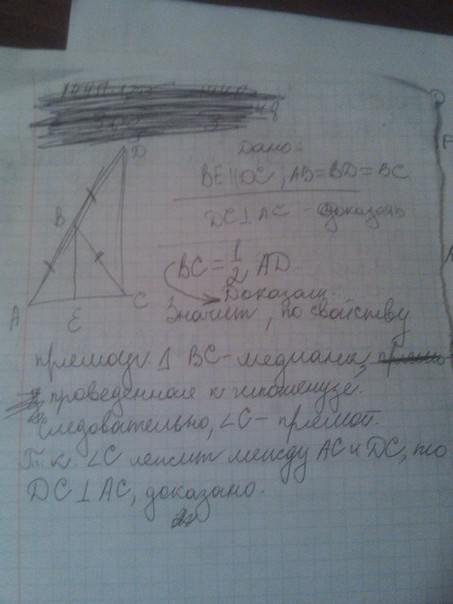 D
B
A
E
C
Дано:
BE||DC, AB=BD=BC
DC⊥AC - доказать
BC=1/2 AD.
Доказали.
Значит, по свойству
прямоуг Δ BC-медиана,
проведенная к гипотенузе.
Следовательно, ∠C- прямой.
Т.к. ∠C лежит между AC и DC, то
DC⊥AC, доказано.